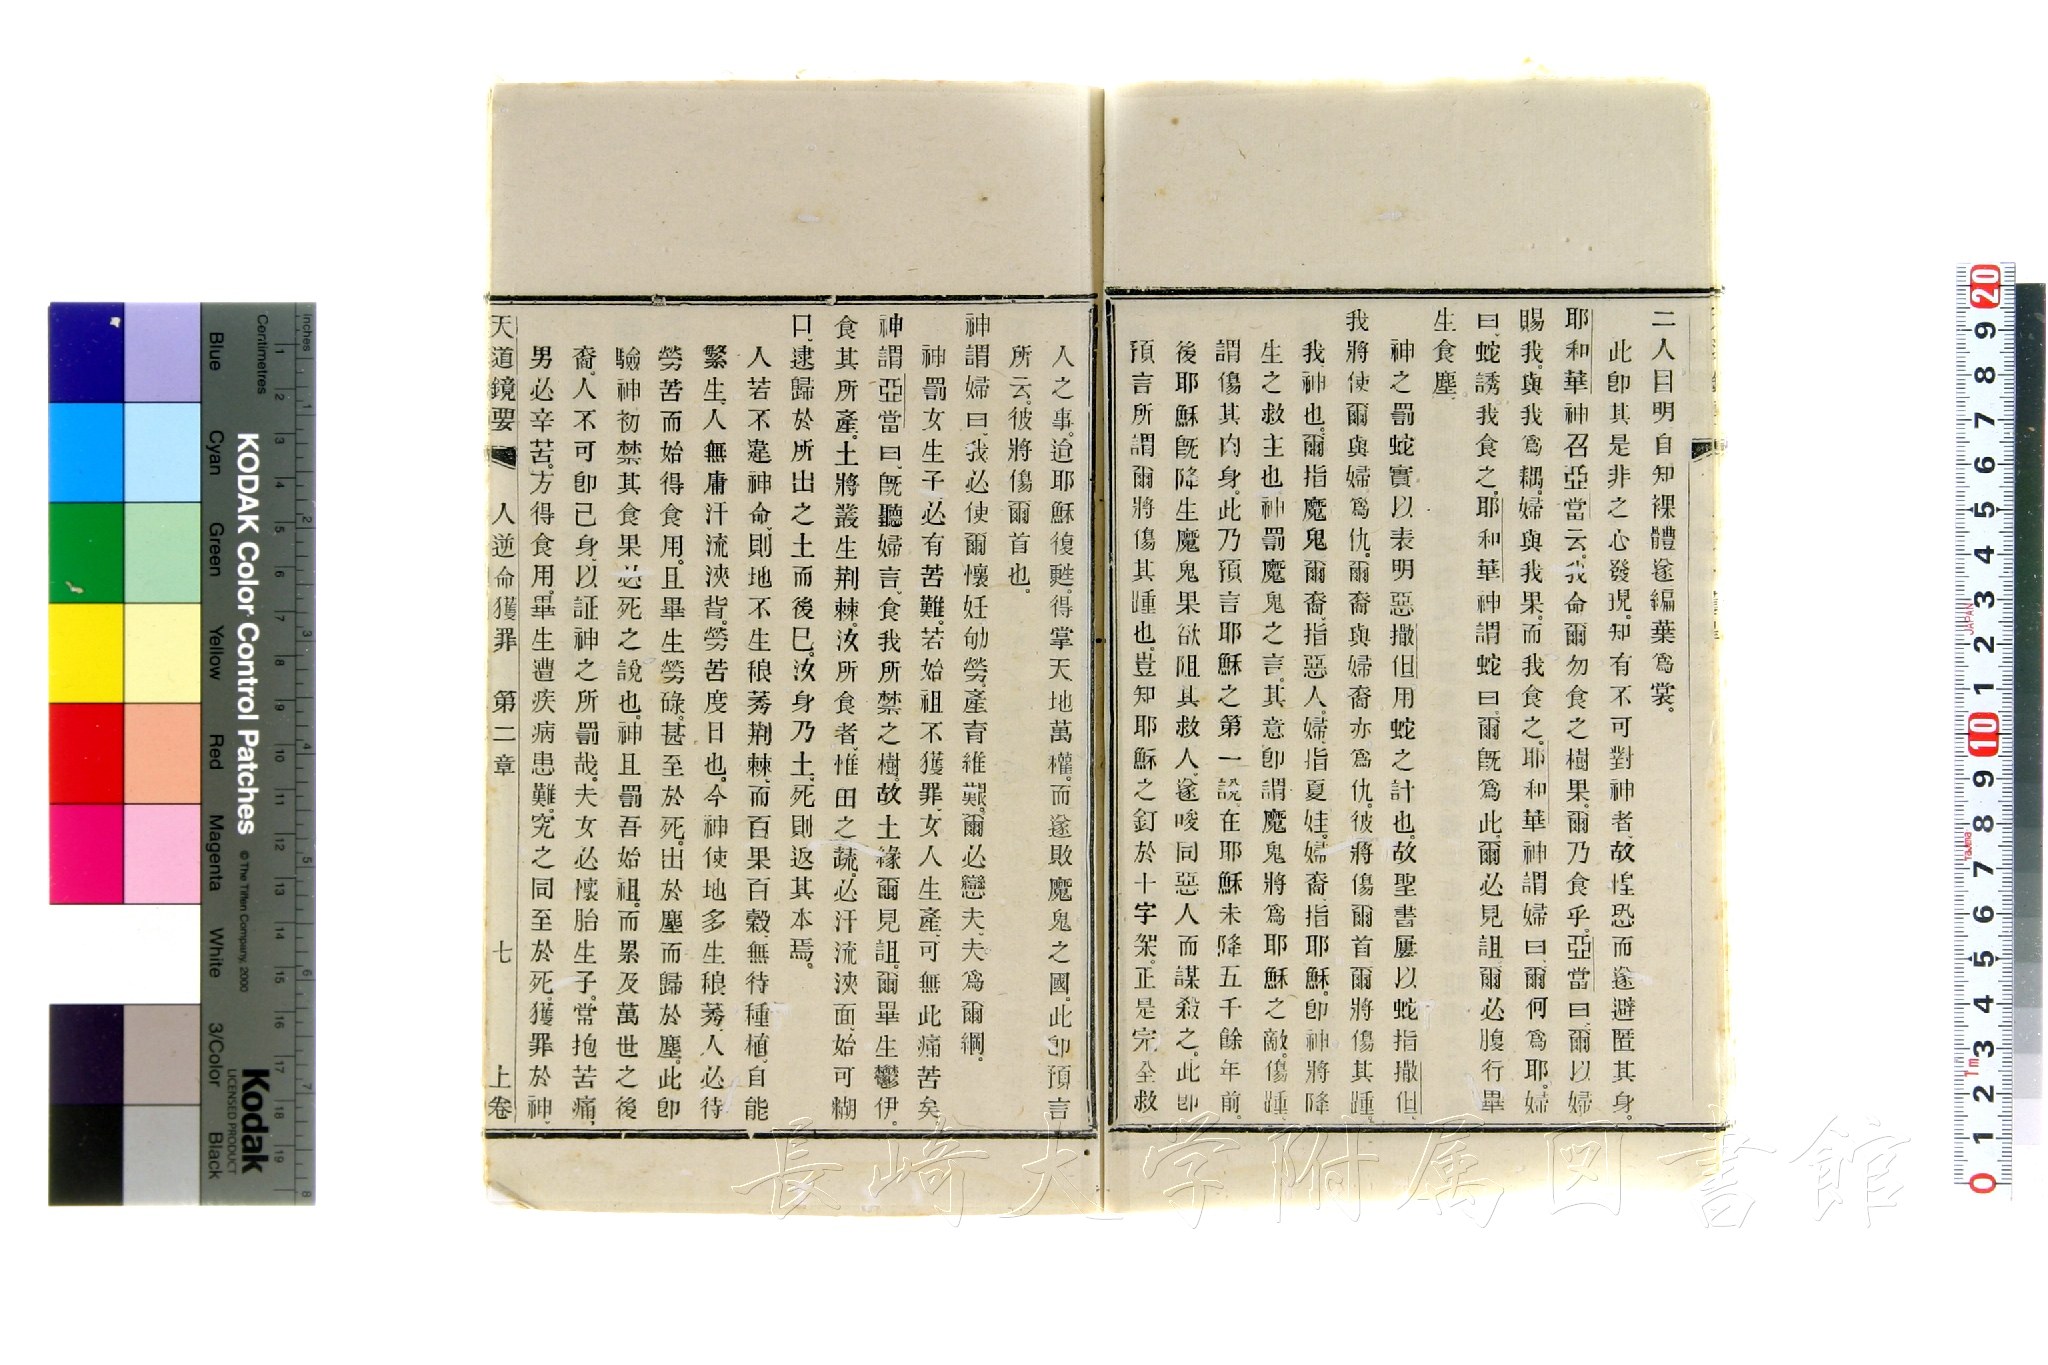 二人目明自知裸體遂編葉爲裳。
此卽其是非之心發現。知有不可對神者、故惶恐而遂避匿其身。
耶和華神召亞當云、我命爾勿食之樹果。爾乃食乎。亞當曰、爾以婦
賜我、與我爲耦。婦與我果。而我食之。耶和華神謂婦曰、爾何爲耶。婦
曰、蛇誘我食之。耶和華神謂蛇曰、爾旣爲此、爾必見詛、爾必腹行、畢
生食塵。
神之罰蛇、實以表明惡撒但用蛇之計也。故聖書屢以蛇指撒但、
我將使爾與婦爲仇。爾裔與婦裔亦爲仇。彼將傷爾首、爾將傷其踵。
我、神也。爾指魔鬼。爾裔、指惡人。婦、指夏娃。婦裔、指耶穌。卽神將降
生之救主也。神罰魔鬼之言、其意卽謂魔鬼將爲耶穌之敵。傷踵、
謂傷其肉身。此乃預言耶穌之第一說、在耶穌未降五千餘年前。
後耶穌旣降生、魔鬼果欲阻其救人、遂唆同惡人而謀殺之。此卽
預言所謂爾將傷其踵也。豈知耶穌之釘於十字架、正是完全救
人之事。迨耶穌復甦、得掌天地萬權。而遂敗魔鬼之國。此卽預言
所云、彼將傷爾首也。
神謂婦曰、我必使爾懷妊劬勞、產育維艱。爾必戀夫、夫爲爾綱。
神罰女生子必有苦難。若始祖不獲罪、女人生產、可無此痛苦矣
神謂亞當曰、旣聽婦言、食我所禁之樹、故土緣爾見詛。爾畢生鬱伊。
食其所產。土將叢生荆棘。汝所食者、惟田之蔬。必汗流浹面、始可糊
口、逮歸於所出之土而後已。汝身乃土、死則返其本焉。
人若不違神命、則地不生稂莠荆棘、而百果百穀、無待種植、自能
繁生、人無庸汗流浹背、勞苦度日也。今神使地多生稂莠、人必待
勞苦而始得食用。且畢生勞碌、甚至於死。出於塵而歸於塵。此卽
驗神初禁其食果、必死之說也。神且罰吾始祖、而累及萬世之後
裔。人不可卽己身、以証神之所罰哉。夫女必懷胎生子。常抱苦痛。
男必辛苦。方得食用。畢生遭疾病患難。究之同至於死。獲罪於神、
天道鏡要 人逆命獲罪 第二章 七 上卷
長崎大学附属図書館
Inches
Centimetres
Blue
Cyan
Green
Yellow
Red
Magenta
White
3/Color
Black
KODAK Color Control Patches
© The Tiffen Company, 2000
Kodak
LICENSED PRODUCT
1 2 3 4 5 6 7 8 9 10 11 12 13 14 15 16 17 18 19
1 2 3 4 5 6 7 8
20 9 8 7 6 5 4 3 2 1 10 9 8 7 6 5 4 3 2 1 0
JAPAN
TAJIMA
1m